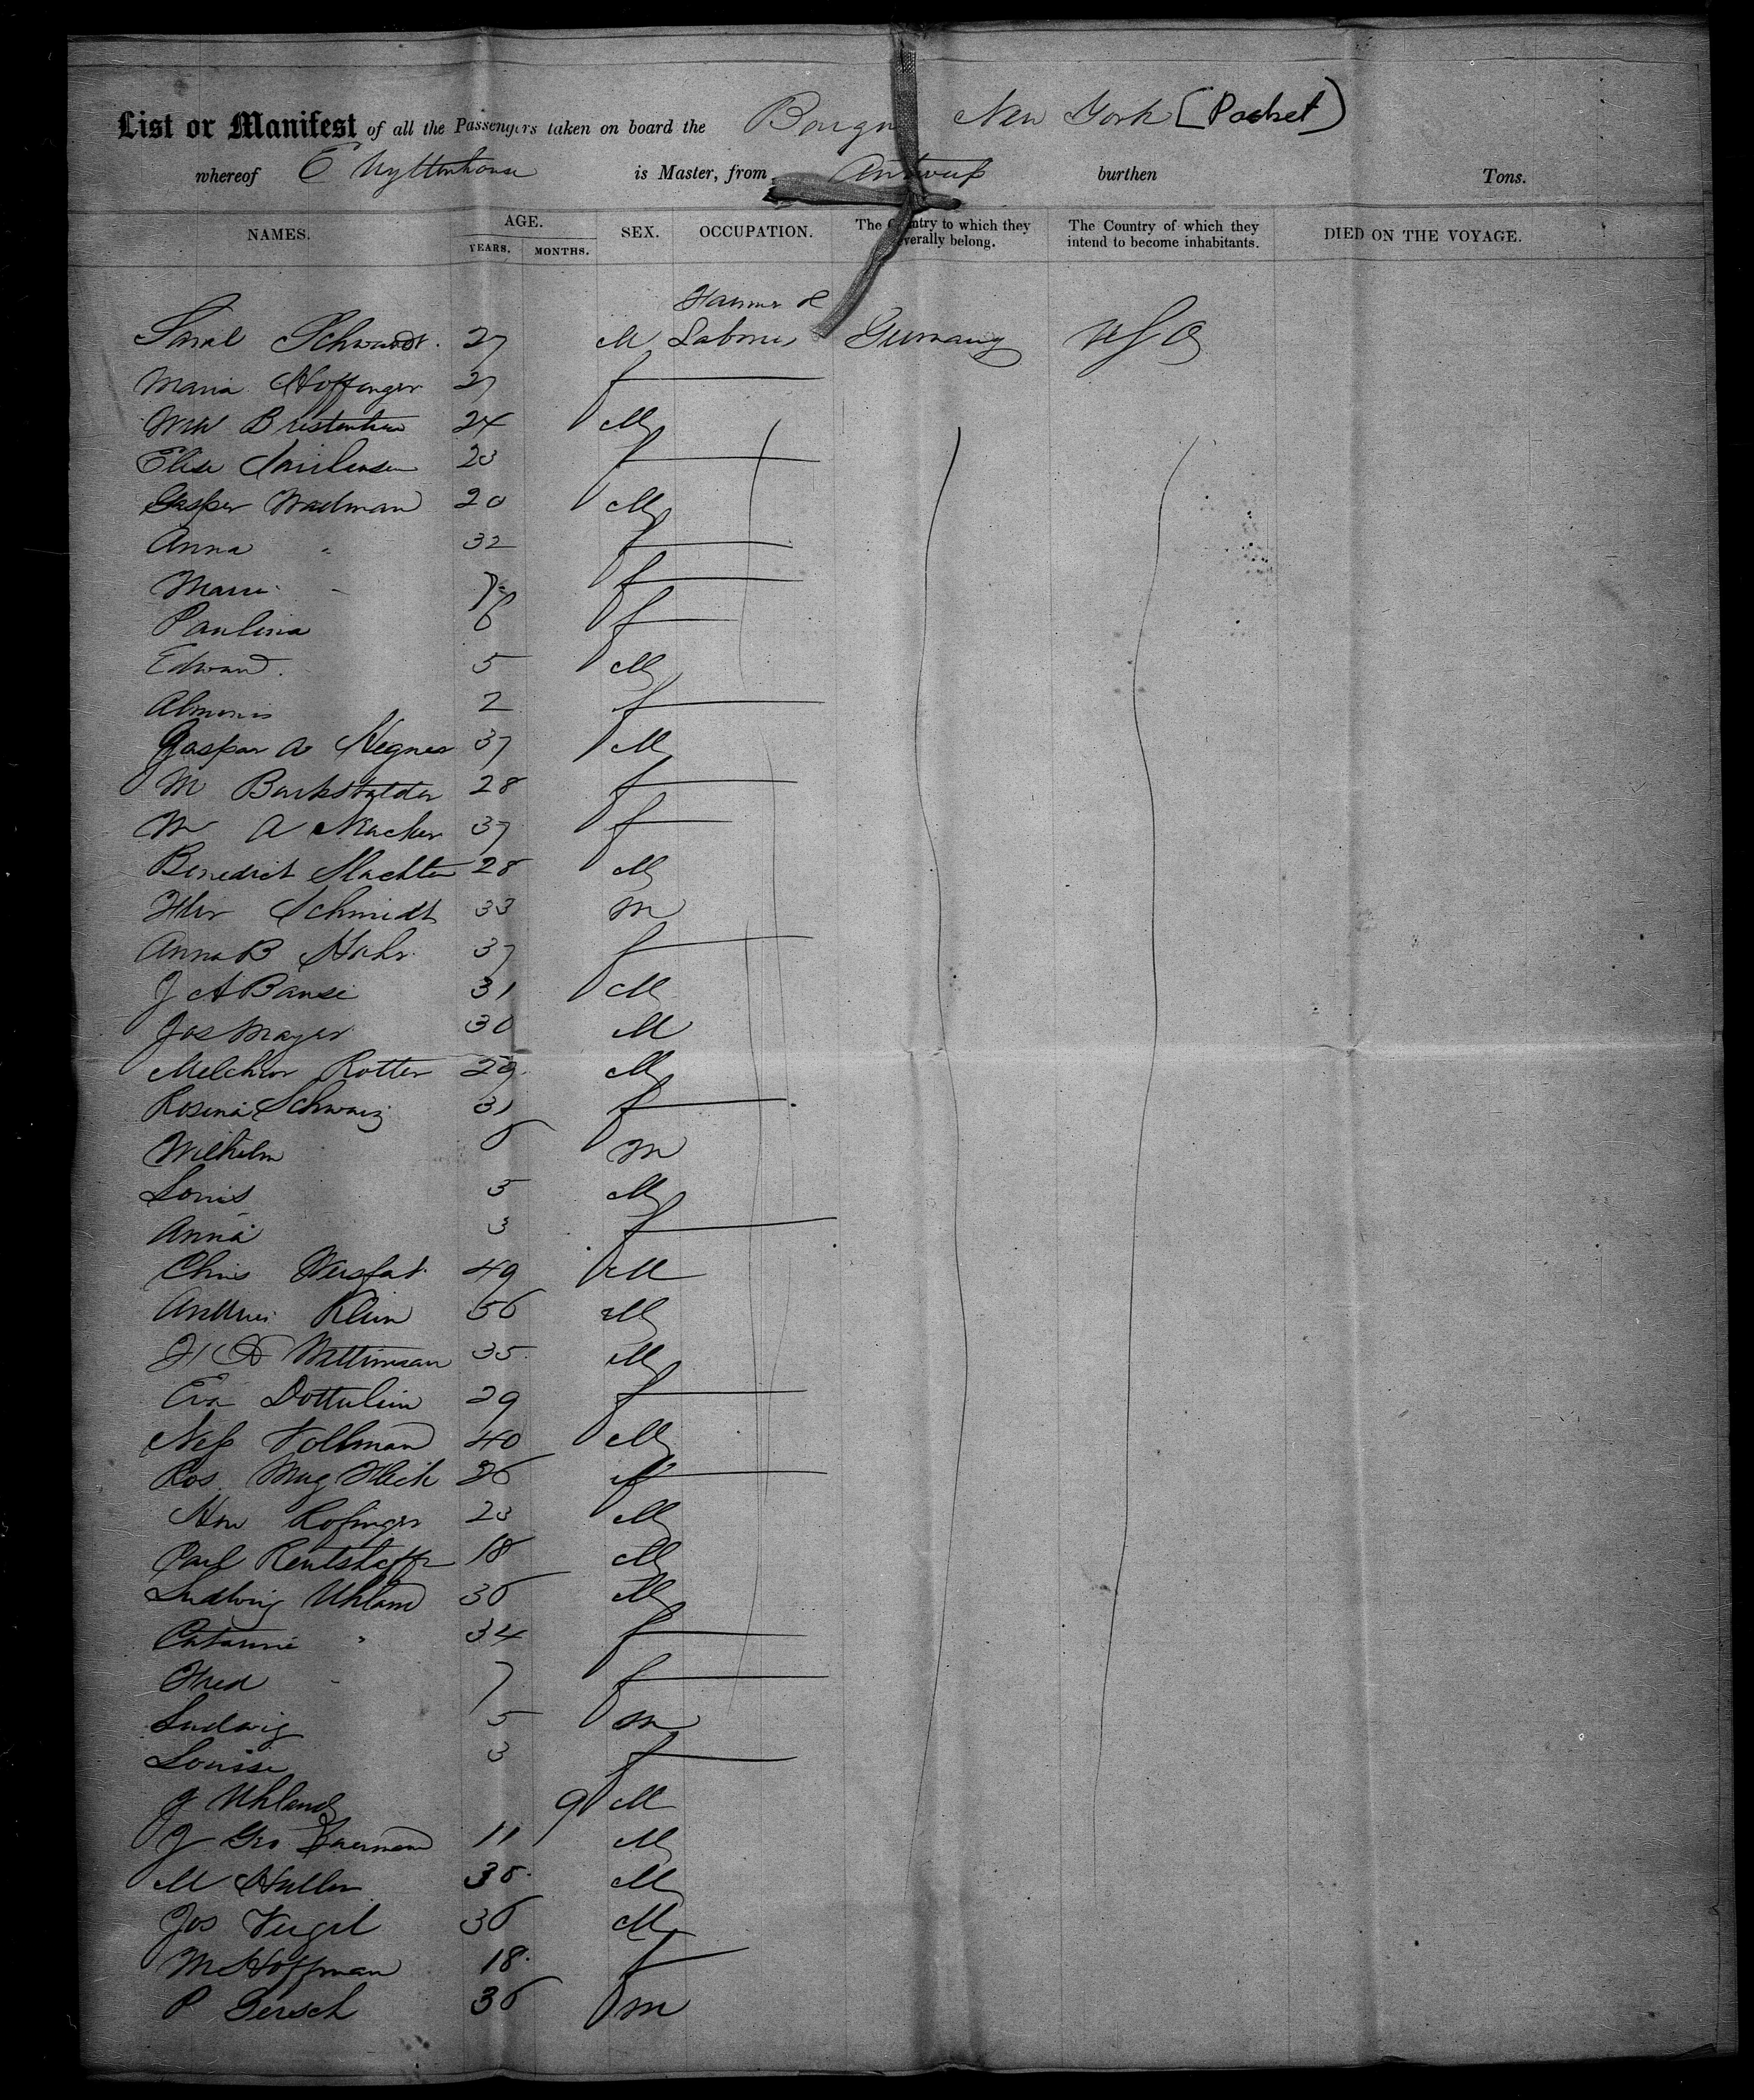 List or Manifest of all the Passengers taken on board the New York [Packet]
whereof E is Master, from Antwerp burthen Tons.
NAMES. AGE. YEARS. MONTHS. SEX. OCCUPATION. The Country to which they severally belong. The Country of which they intend to become inhabitants. DIED ON THE VOYAGE.
Farmer &
Schwandt. 27 M Laborer Germany USA
Maria Hoffinger 27 f
Wm 24 M
Elise 23 f
Gasper Wadman 20 M
Anna " 32 f
Marie " 7 f
Paulina 6 f
Edward 5 M
2 f
Gaspar A Hegner 37 M
M Burkstalder 28 f
M A Macker 37 f
Benedict Slachter 28 M
Schmidt 33 m
Anna B Hahr 37 f
J A Banse 31 M
Jos Mayer 30 M
Melchior Rotter 29 M
Rosina Schwarz 31 f
Wilhelm 6 m
Louis 5 M
Anna 3 f
Chris 49 M
Klein 56 M
35 M
Eva 29 f
Vollman 40 M
Ros Mag Fleck 26 f
23 M
Paul 18 M
Ludwig Uhland 36 M
Catarine " 34 f
Fred " 7 f
Ludwig 5 m
Louise 3 f
J Uhland 9 M
J Geo 11 M
M Huller 36 M
Jos Veigel 36 M
M Hoffman 18 f
P Gersch 36 m